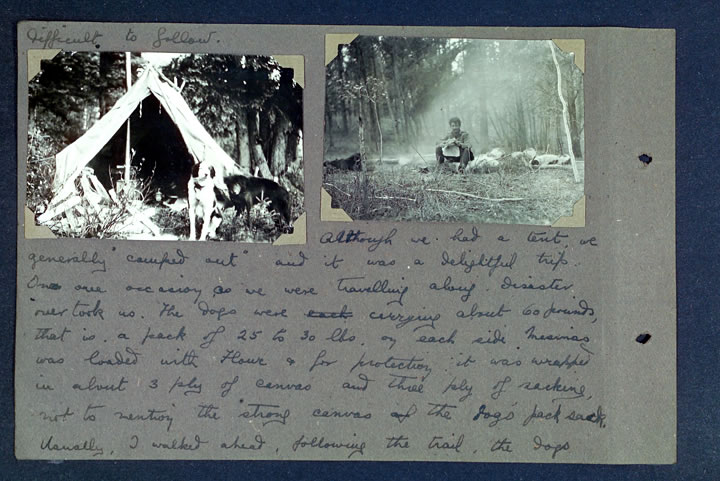 difficult to follow.
Although we had a tent, we
generally "camped out" and it was a delightful trip.
On one occasion as we were travelling along disaster
overtook us. The dogs were each carrying about 60 pounds,
that is a pack of 25 to 30 lbs. on each side.
was loaded with Flour & for protection it was wrapped
in about 3 ply of canvas and three ply of sacking,
not to mention the strong canvas of the dogs pack sack.
Usually, I walked ahead, following the trail, the dogs